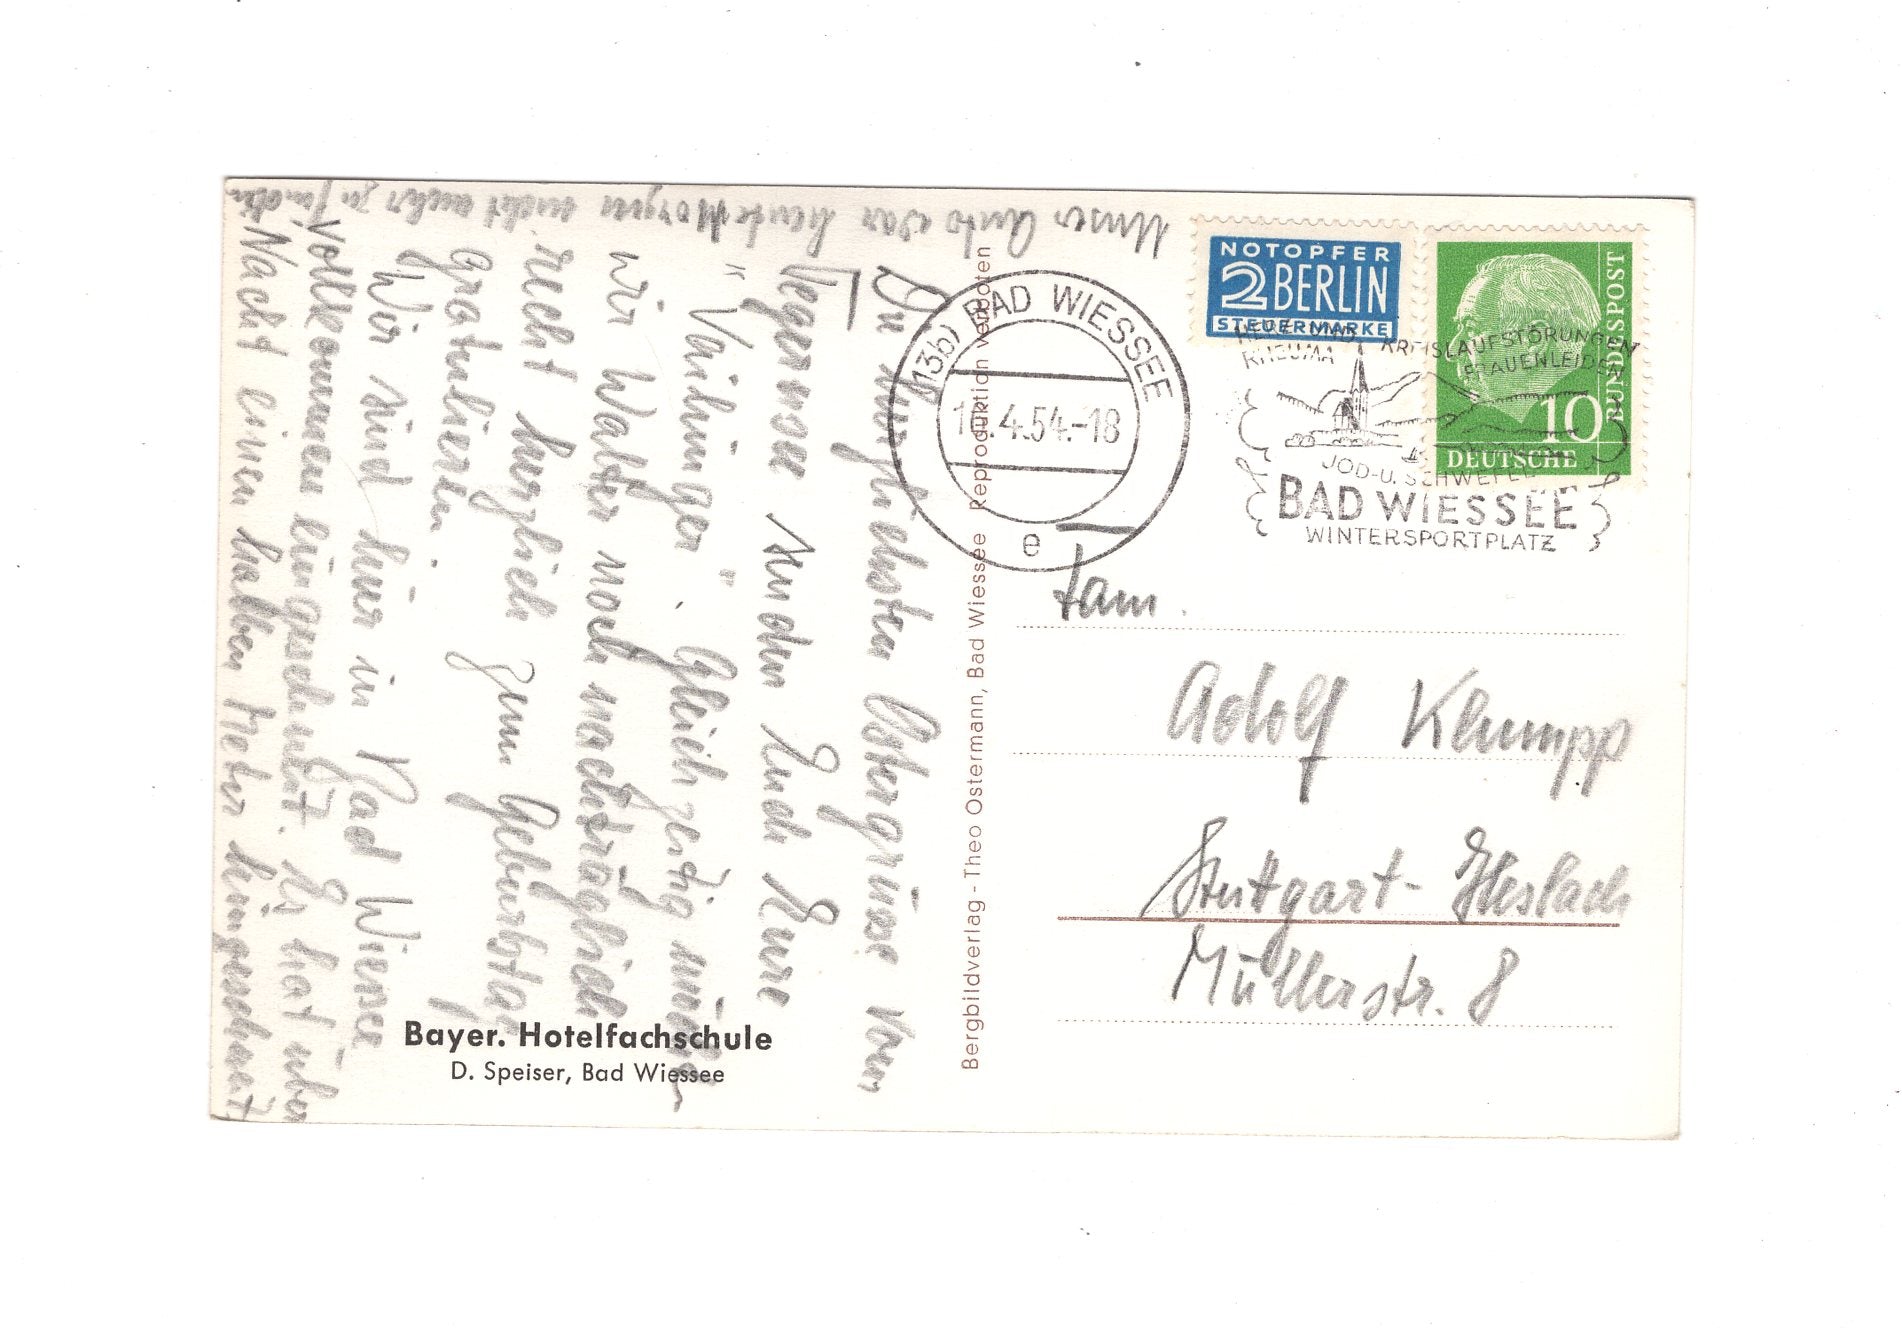 Die herzlichsten Ostergrüsse vom
Tegernsee senden Euch Eure
"Vaihinger". Gleichzeitig möchten
wir Walter noch nachträglich
recht herzlich zum Geburtstag
gratulieren.
Wir sind hier in Bad Wiessee
vollkommen eingeschneit. Es hat über
Nacht einen halben Meter hingeschneit
Unser Auto war heute Morgen nicht mehr zu finden
Bayer. Hotelfachschule
D. Speiser, Bad Wiessee
Bergbildverlag - Theo Ostermann, Bad Wiessee Reproduktion verboten
(13b) BAD WIESSEE
.4.54.-18
e
NOTOPFER
2 BERLIN
STEUERMARKE
DEUTSCHE
BUNDESPOST
10
RHEUMA KREISLAUFSTÖRUNGEN
FRAUENLEIDEN
JOD-U. SCHWEFEL
BAD WIESSEE
WINTERSPORTPLATZ
Fam.
Adolf Klumpp
Stuttgart-Heslach
Müllerstr. 8